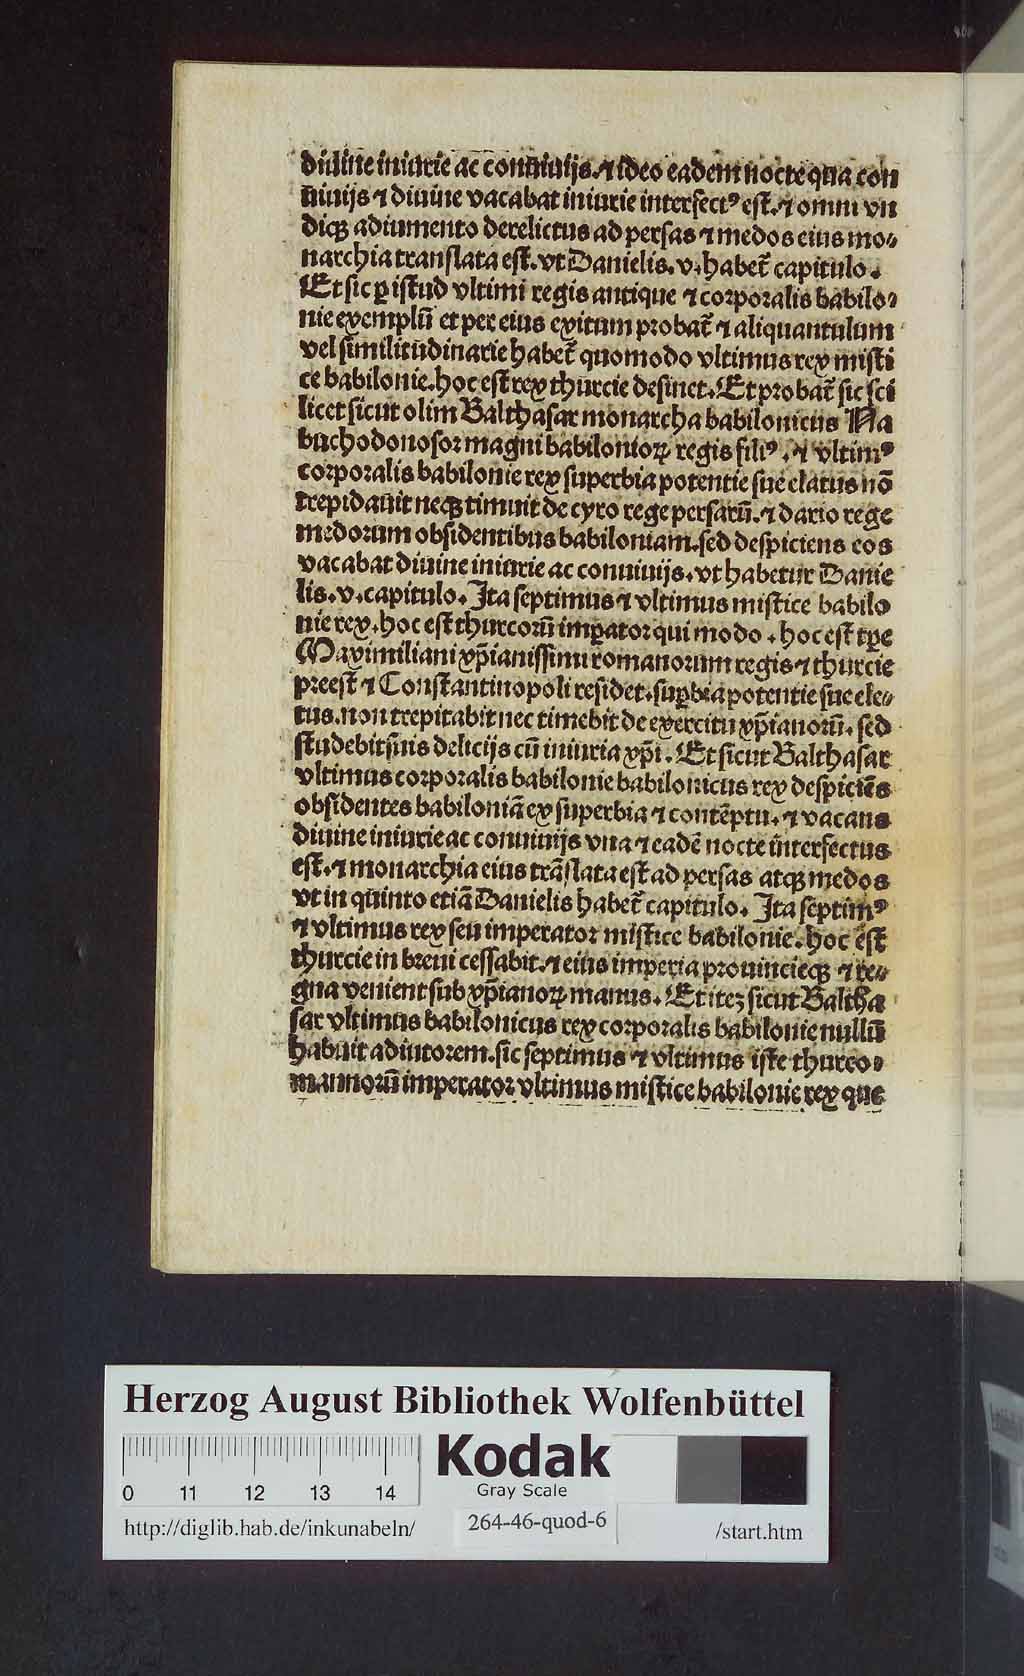 diuine iniurie ac conuiuijs. ⁊ ideo eadem nocte qua con
uiuijs ⁊ diuine vacabat iniurie interfectꝰ est. ⁊ omni vn
dicꝫ adiumento derelictus ad persas ⁊ medos eius mo⸗
narchia translata est. vt Danielis. v. habet᷑ capitulo.
Et sic ꝑ istud vltimi regis antique ⁊ corporalis babilo⸗
nie exemplū et per eius exitum probat᷑ ⁊ aliquantulum
vel similitudinarie habet᷑ quomodo vltimus rex misti
ce babilonie. hoc est rex thurcie desinet. Et probat᷑ sic sci
licet sicut olim Balthasar monarcha babilonicus Na
buchodonosor magni babilonioꝝ regis filiꝰ. ⁊ vltimꝰ
corporalis babilonie rex superbia potentie sue elatus nō
trepidauit necꝫ timuit de cyro rege persarū. ⁊ dario rege
medorum obsidentibus babiloniam. sed despiciens eos
vacabat diuine iniurie ac conuiuijs. vt habetur Danie
lis. v. capitulo. Ita septimus ⁊ vltimus mistice babilo
nie rex. hoc est thurcorū imꝑator qui modo. hoc est tꝑe
Maximiliani xp̄ianissimi romanorum regis ⁊ thurcie
preest ⁊ Constantinopoli residet. suꝑbia potentie sue ele⸗
tus. non trepitabit nec timebit de exercitu xp̄ianorū. sed
studebit suis delicijs cū iniuria xp̄i. Et sicut Balthasar
vltimus corporalis babilonie babilonicus rex despiciēs
obsidentes babiloniā ex superbia ⁊ contēptu. ⁊ vacans
diuine iniurie ac conuiuijs vna ⁊ eadē nocte interfectus
est. ⁊ monarchia eius trāslata est ad persas atqꝫ medos
vt in quinto etiā Danielis habet᷑ capitulo. Ita septimꝰ
⁊ vltimus rex seu imperator mistice babilonie. hoc est
thurcie in breui cessabit. ⁊ eius imperia prouinciecꝫ ⁊ re⸗
gna venient sub xp̄ianoꝝ manus. Et iteꝫ sicut Baltha
sar vltimus babilonicus rex corporalis babilonie nullū
habuit adiutorem. sic septimus ⁊ vltimus iste thurco⸗
mannorū imperator vltimus mistice babilonie rex que
Herzog August Bibliothek Wolfenbüttel
Kodak
Gray Scale
0 11 12 13 14
http://diglib.hab.de/inkunabeln/ 264-46-quod-6 /start.htm